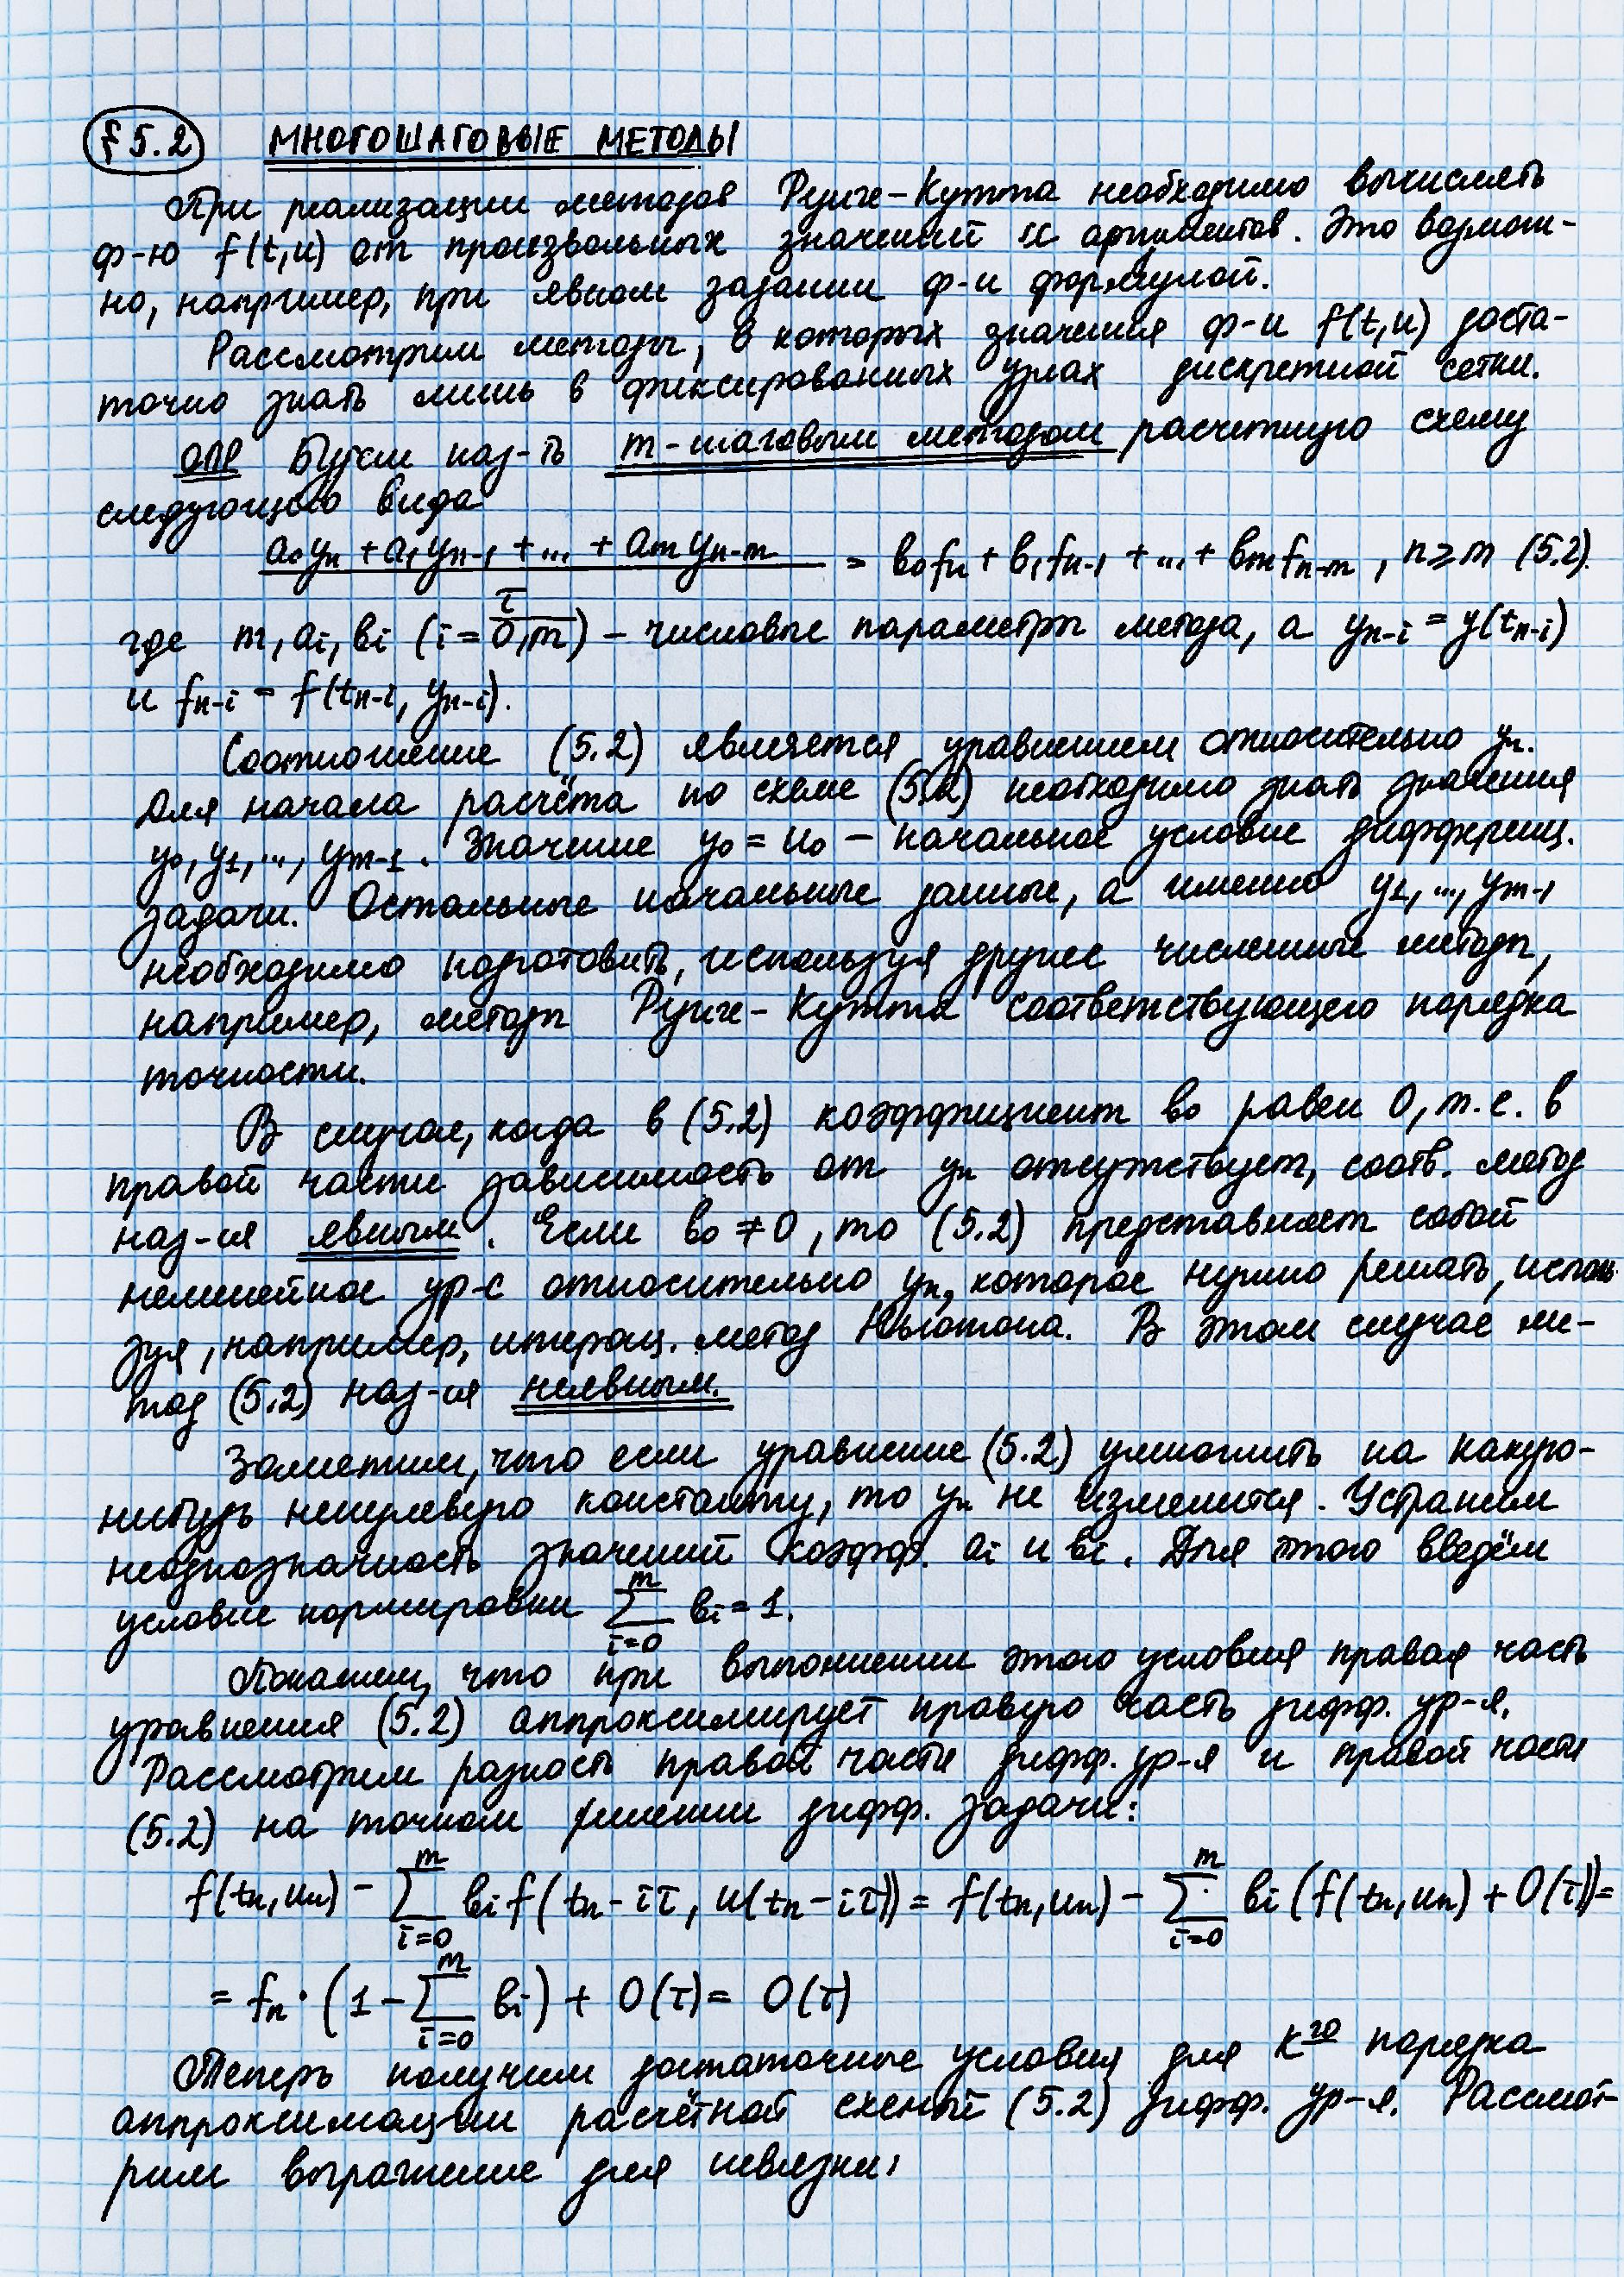 § 5.2 МНОГОШАГОВЫЕ МЕТОДЫ
При реализации методов Рунге-Кутта необходимо вычислять
ф-ю f(t,u) от произвольных значений их аргументов. Это возмож-
но, например, при явном задании ф-и формулой.
Рассмотрим методы, в которых значения ф-и f(t,u) доста-
точно знать лишь в фиксированных узлах дискретной сетки.
ОПР Будем наз-ть m-шаговым методом расчетную схему
следующего вида
(a₀yₙ + a₁yₙ₋₁ + ... + aₘyₙ₋ₘ) / τ = b₀fₙ + b₁fₙ₋₁ + ... + bₘfₙ₋ₘ, n ≥ m (5.2).
где m, aᵢ, bᵢ (i = 0,m) – числовые параметры метода, а yₙ₋ᵢ = y(tₙ₋ᵢ)
и fₙ₋ᵢ = f(tₙ₋ᵢ, yₙ₋ᵢ).
Соотношение (5.2) является уравнением относительно yₙ.
Для начала расчёта по схеме (5.2) необходимо знать значения
y₀, y₁, ..., yₘ₋₁. Значение y₀ = u₀ – начальное условие дифференц.
задачи. Остальные начальные данные, а именно y₁, ..., yₘ₋₁
необходимо подготовить, используя другие численные методы,
например, методы Рунге-Кутта соответствующего порядка
точности.
В случае, когда в (5.2) коэффициент b₀ равен 0, т.е. в
правой части зависимость от yₙ отсутствует, соотв. метод
наз-ся явным. Если b₀ ≠ 0, то (5.2) представляет собой
нелинейное ур-е относительно yₙ, которое нужно решать, исполь
зуя, например, итерац. метод Ньютона. В этом случае ме-
тод (5.2) наз-ся неявным.
Заметим, что если уравнение (5.2) умножить на какую-
нибудь ненулевую константу, то yₙ не изменится. Устраним
неоднозначность значений коэфф. aᵢ и bᵢ. Для этого введём
условие нормировки ∑ᵢ₌₀ᵐ bᵢ = 1.
Покажем, что при выполнении этого условия правая часть
уравнения (5.2) аппроксимирует правую часть дифф. ур-я.
Рассмотрим разность правой части дифф. ур-я и правой части
(5.2) на точном решении дифф. задачи:
f(tₙ, uₙ) – ∑ᵢ₌₀ᵐ bᵢ f(tₙ – iτ, u(tₙ – iτ)) = f(tₙ, uₙ) – ∑ᵢ₌₀ᵐ bᵢ (f(tₙ, uₙ) + O(τ)) =
= fₙ · (1 – ∑ᵢ₌₀ᵐ bᵢ) + O(τ) = O(τ)
Теперь получим достаточные условия для kᵍᵒ порядка
аппроксимации расчётной схемой (5.2) дифф. ур-я. Рассмот-
рим выражение для невязки: